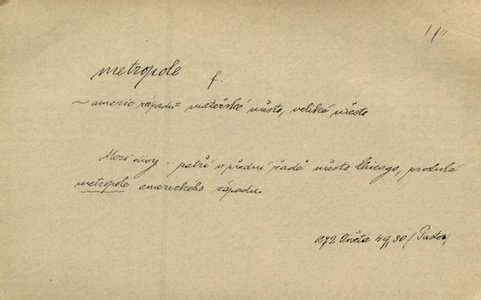 metropole f.
~ americ západu = mateřské město, veliké město
Mezi divy - patří v přední řadě město Chicago, proslulá
metropole amerického západu.
B72 Světa 49, 30 (Pastor)